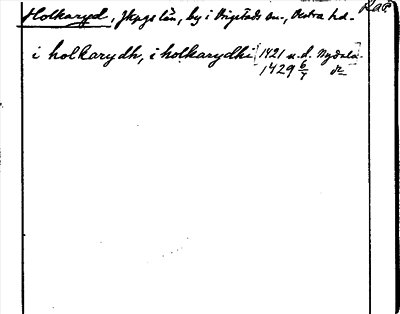 Holkaryd, Jkpgs län, by i Vrigstads sn., Västra hd.
i holkarydh, i holkarydhi 1421 u.d. Nydala
1429 6/7 dr